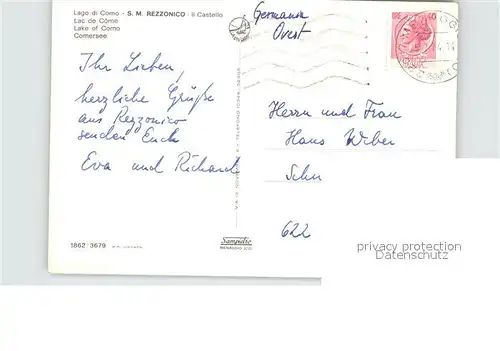 Lago di Como - S. M. REZZONICO - Il Castello
Lac de Côme
Lake of Como
Comersee
Germania
Ovest
Ihr Lieben,
herzliche Grüße
aus Rezzonico
senden Euch
Eva und Richard
Herrn und Frau
Hans Weber
Schn
622
Sampietro
MENAGGIO
1862 3679
privacy protection
Datenschutz